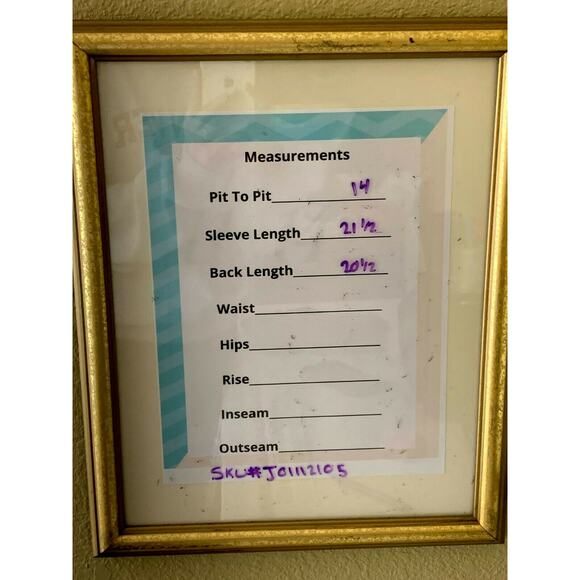 Measurements
Pit To Pit 14
Sleeve Length 21 1/2
Back Length 20 1/2
Waist
Hips
Rise
Inseam
Outseam
SKU#J01112105